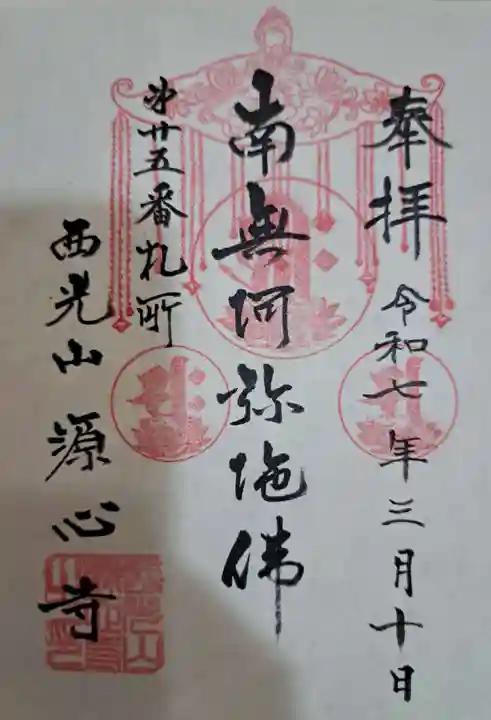 奉拝 令和七年三月十日
南無阿弥陀佛
第廿五番札所
西光山 源心寺